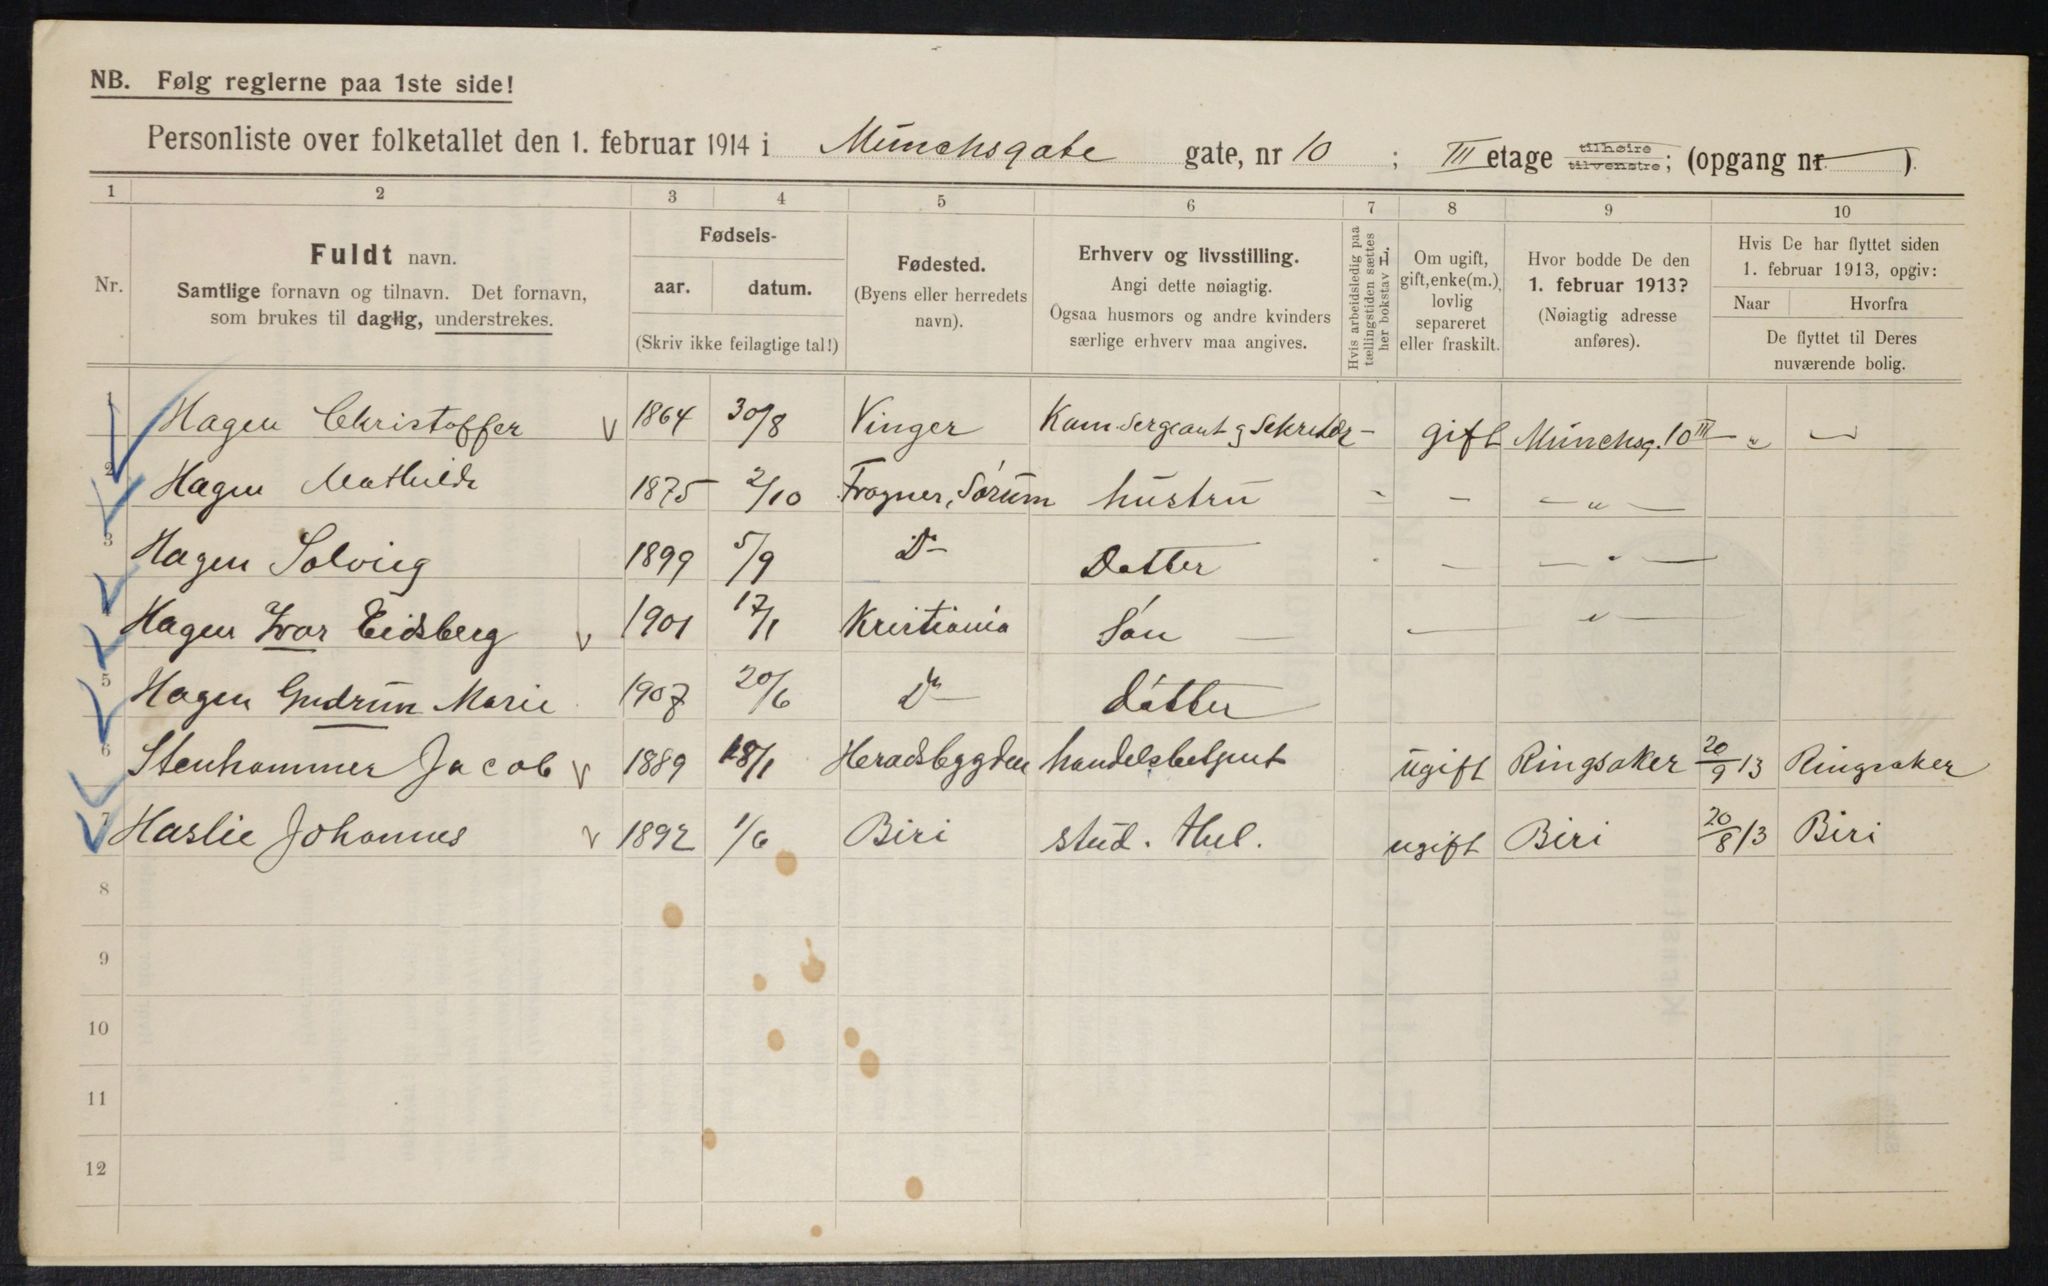 NB. Følg reglerne paa 1ste side!
Personliste over folketallet den 1. februar 1914 i Munchsgate gate, nr 10 ; III etage tilhøire tilvenstre; (opgang nr. — ).
1 2 3 4 5 6 7 8 9 10
Nr.
Fuldt navn.
Samtlige fornavn og tilnavn. Det fornavn,
som brukes til daglig, understrekes.
Fødsels-
aar. datum.
(Skriv ikke feilagtige tal!)
Fødested.
(Byens eller herredets
navn).
Erhverv og livsstilling.
Angi dette nøiagtig.
Ogsaa husmors og andre kvinders
særlige erhverv maa angives.
Hvis arbeidsledig paa
tællingstiden sættes
her bokstav L.
Om ugift,
gift, enke(m.),
lovlig
separeret
eller fraskilt.
Hvor bodde De den
1. februar 1913?
(Nøiagtig adresse
anføres).
Hvis De har flyttet siden
1. februar 1913, opgiv:
Naar Hvorfra
De flyttet til Deres
nuværende bolig.
1 Hagen Christoffer v 1864 30/8 Vinger Kam. sergeant og Sekretær – gift Munchsg. 10 III – " —
2 Hagen Mathilde 1875 2/10 Frogner, Sørum hustru - – – " –
3 Hagen Solveig 1899 5/9 Do – Datter - – – " –
4 Hagen Ivar Eidsberg v 1901 17/1 Kristiania Søn — — " —
5 Hagen Gudrun Marie 1907 20/6 Do – datter
6 Stenhammer Jacob v 1889 18/1 Heradsbygden handelsbetjent ugift Ringsaker 20/9 13 Ringsaker
7 Haslie Johannes v 1892 1/6 Biri stud. ugift Biri 20/8 13 Biri
8
9
10
11
12